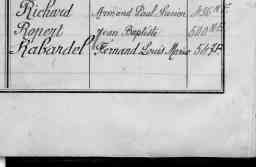 Richard Armand Paul Marion
Ropert Jean Baptiste 500
Rabardel Fernand Louis Marie